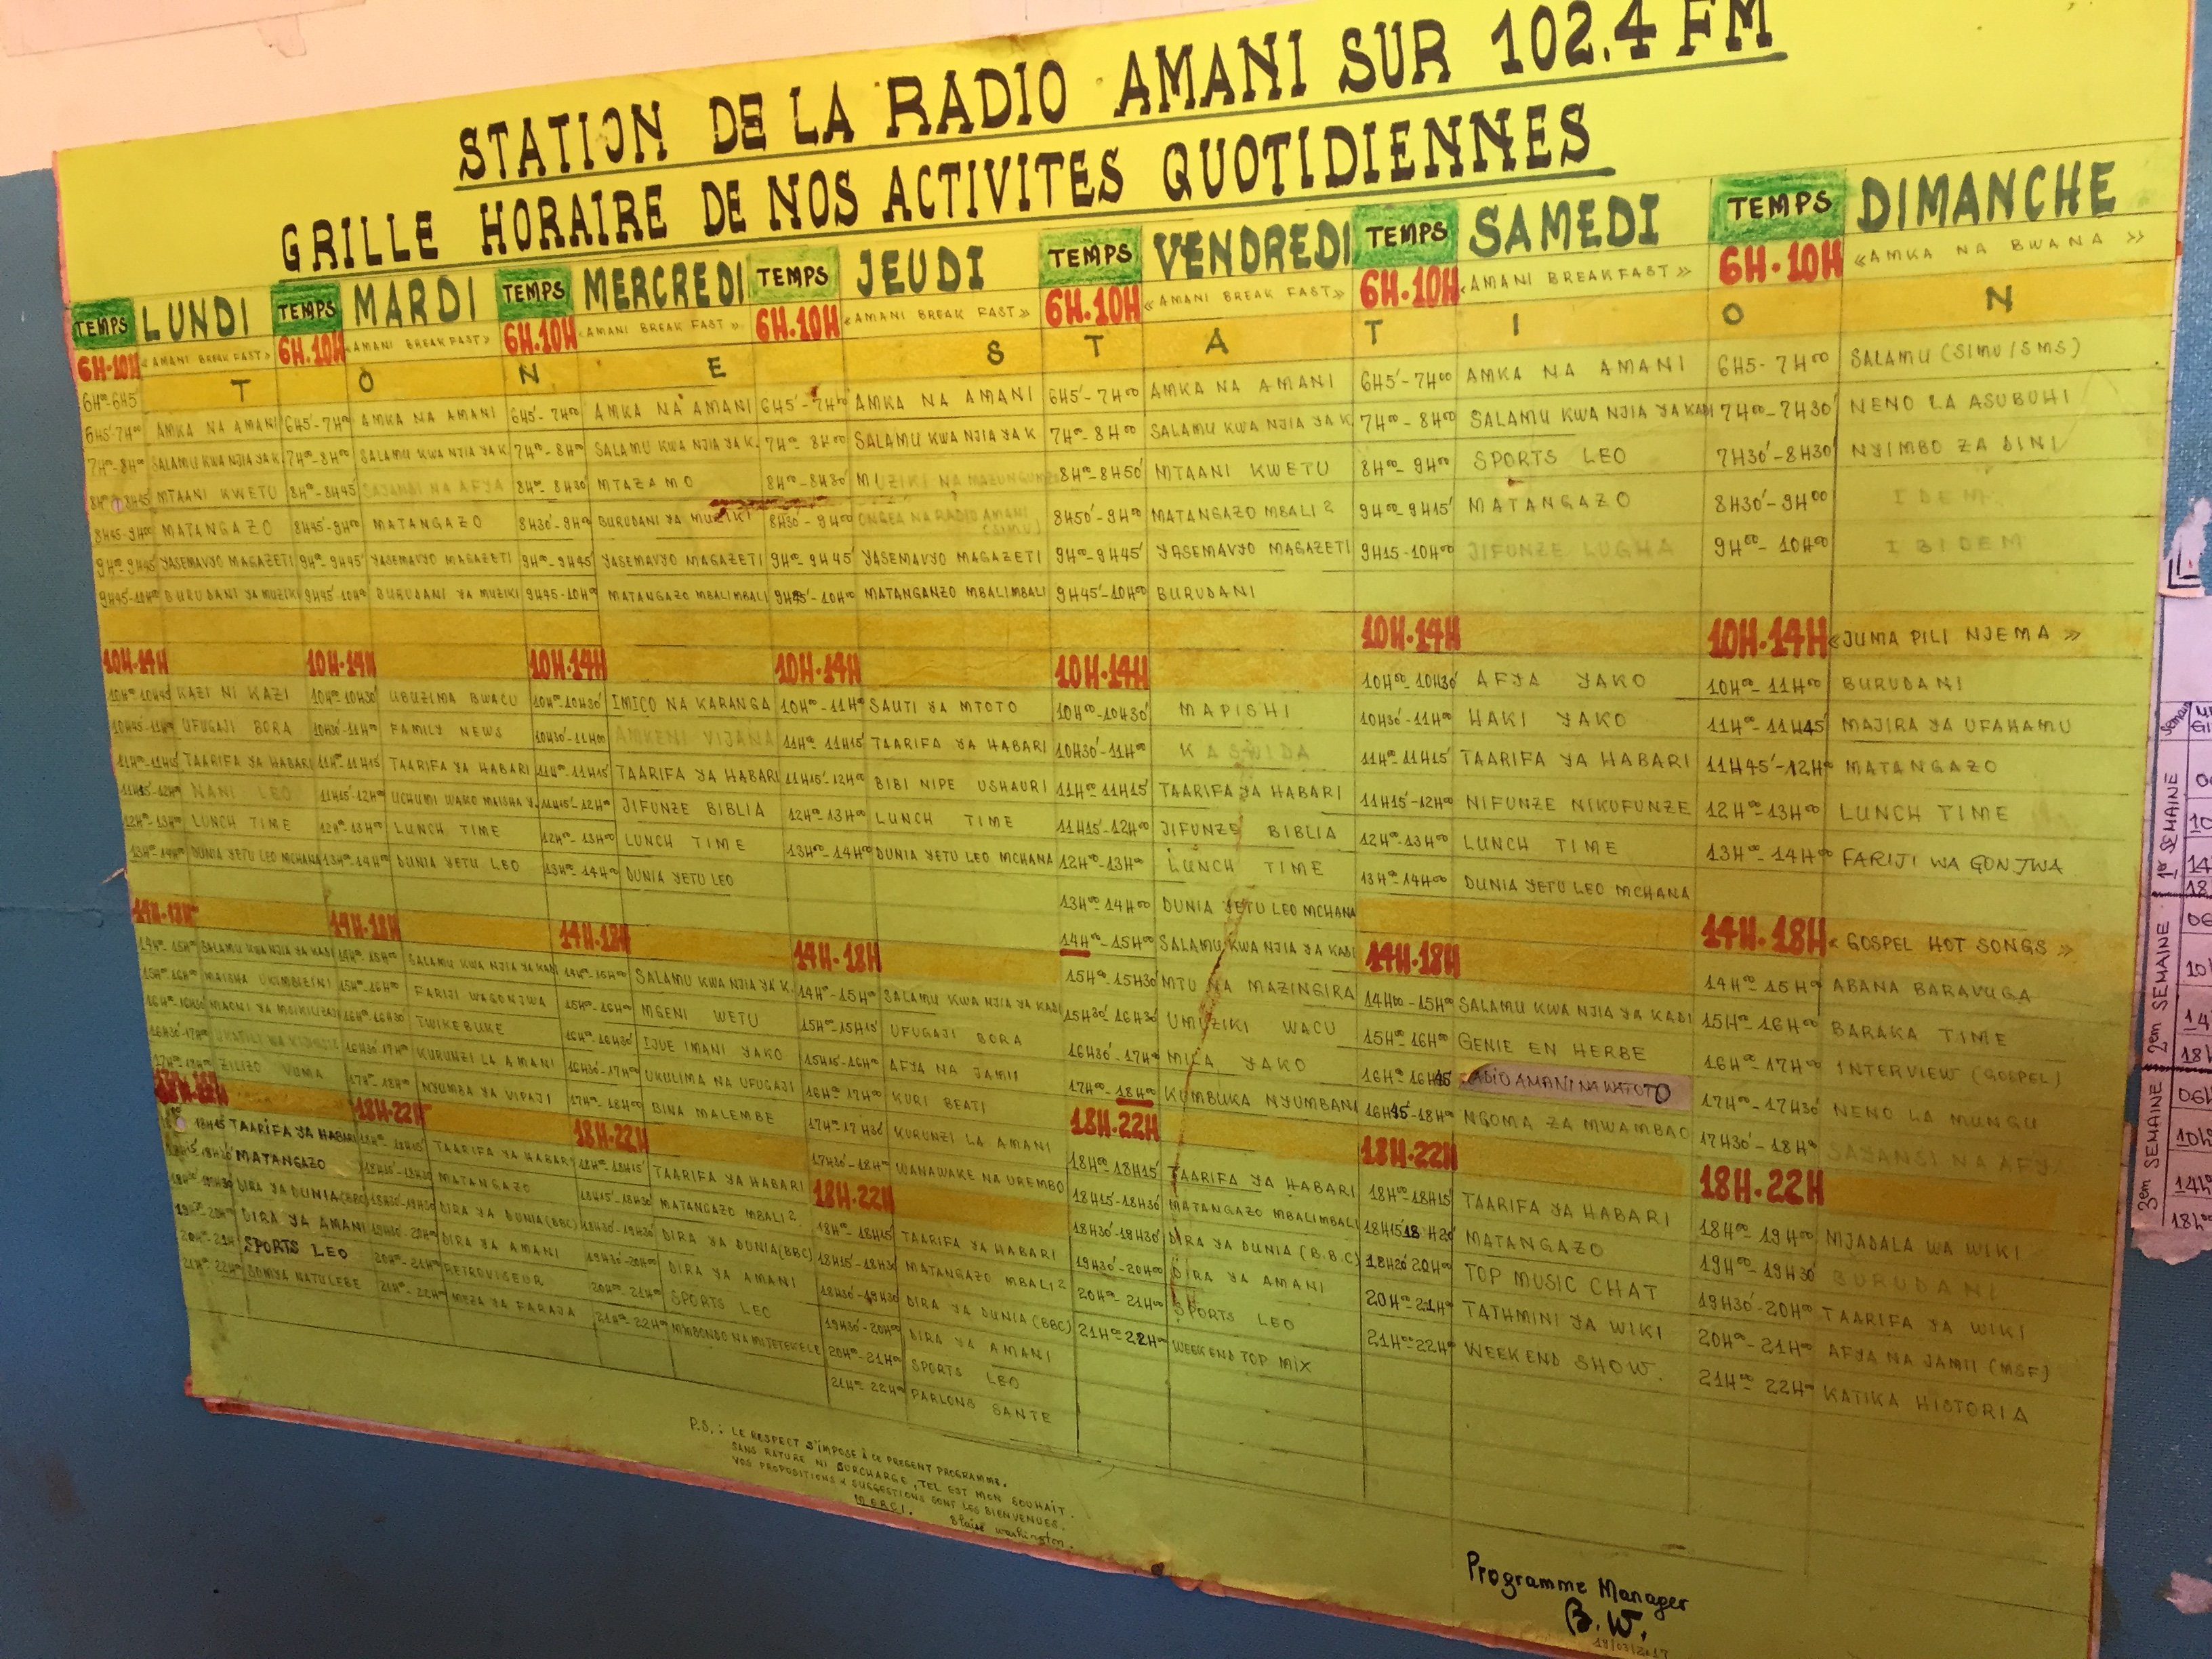 STATION DE LA RADIO AMANI SUR 102.4 FM
GRILLE HORAIRE DE NOS ACTIVITES QUOTIDIENNES
TEMPS LUNDI TEMPS MARDI TEMPS MERCREDI TEMPS JEUDI TEMPS VENDREDI TEMPS SAMEDI TEMPS DIMANCHE
6H.10H «AMANI BREAK FAST» 6H.10H «AMANI BREAKFAST» 6H.10H «AMANI BREAK FAST» 6H.10H «AMANI BREAK FAST» 6H.10H «AMANI BREAK FAST» 6H.10H «AMANI BREAKFAST» 6H.10H «AMKA NA BWANA»
6H00-6H5' T O N E S T A T I O N
6H5'-7H00 AMKA NA AMANI 6H5'-7H00 AMKA NA AMANI 6H5'-7H00 AMKA NA AMANI 6H5'-7H00 AMKA NA AMANI 6H5'-7H00 AMKA NA AMANI 6H5'-7H00 AMKA NA AMANI 6H5-7H00 SALAMU (SIMU/SMS)
7H00-8H00 SALAMU KWA NJIA YA K 7H00-8H00 SALAMU KWA NJIA YA K 7H00-8H00 SALAMU KWA NJIA YA K. 7H00-8H00 SALAMU KWA NJIA YA K 7H00-8H00 SALAMU KWA NJIA YA K 7H00-8H00 SALAMU KWA NJIA YA KADI 7H00-7H30' NENO LA ASUBUHI
8H00-8H45 MTAANI KWETU 8H00-8H45 NA AFYA 8H00-8H30 MTAZAMO 8H00-8H30' MUZIKI NA MAZUNGUMZO 8H00-8H50' MTAANI KWETU 8H00-9H00 SPORTS LEO 7H30'-8H30' NYIMBO ZA DINI
8H45-9H00 MATANGAZO 8H45'-9H00 MATANGAZO 8H30'-9H00 BURUDANI YA MUZIKI 8H30-9H00 ONGEA NA RADIO AMANI (SIMU) 8H50'-9H00 MATANGAZO MBALI 2 9H00-9H15' MATANGAZO 8H30'-9H00 IDEM
9H00-9H45 YASEMAVYO MAGAZETI 9H00-9H45' YASEMAVYO MAGAZETI 9H00-9H45' YASEMAVYO MAGAZETI 9H00-9H45 YASEMAVYO MAGAZETI 9H00-9H45' YASEMAVYO MAGAZETI 9H15-10H00 JIFUNZE LUGHA 9H00-10H00 IBIDEM
9H45'-10H00 BURUDANI YA MUZIKI 9H45'-10H00 BURUDANI YA MUZIKI 9H45-10H00 MATANGAZO MBALIMBALI 9H45'-10H00 MATANGANZO MBALIMBALI 9H45'-10H00 BURUDANI
10H.14H 10H.14H 10H.14H 10H.14H 10H.14H 10H.14H 10H.14H «JUMA PILI NJEMA»
10H00-10H45 KAZI NI KAZI 10H00-10H30' UBUZIMA BWACU 10H00-10H30' IMICO NA KARANGA 10H00-11H00 SAUTI YA MTOTO 10H00-10H30' MAPISHI 10H00-10H30' AFYA YAKO 10H00-11H00 BURUDANI
10H45-11H00 UFUGAJI BORA 10H30'-11H00 FAMILY NEWS 10H30'-11H00 AMKENI VIJANA 11H00-11H15' TAARIFA YA HABARI 10H30'-11H00 KASWIDA 10H30'-11H00 HAKI YAKO 11H00-11H45' MAJIRA YA UFAHAMU
11H00-11H15 TAARIFA YA HABARI 11H00-11H15 TAARIFA YA HABARI 11H00-11H15' TAARIFA YA HABARI 11H15'-12H00 BIBI NIPE USHAURI 11H00-11H15' TAARIFA YA HABARI 11H00-11H15' TAARIFA YA HABARI 11H45'-12H00 MATANGAZO
11H15'-12H00 NANI LEO 11H15'-12H00 UCHUMI WAKO MAISHA Y. 11H15'-12H00 JIFUNZE BIBLIA 12H00-13H00 LUNCH TIME 11H15'-12H00 JIFUNZE BIBLIA 11H15'-12H00 NIFUNZE NIKUFUNZE 12H00-13H00 LUNCH TIME
12H00-13H00 LUNCH TIME 12H00-13H00 LUNCH TIME 12H00-13H00 LUNCH TIME 13H00-14H00 DUNIA YETU LEO MCHANA 12H00-13H00 LUNCH TIME 12H00-13H00 LUNCH TIME 13H00-14H00 FARIJI WAGONJWA
13H00-14H00 DUNIA YETU LEO MCHANA 13H00-14H00 DUNIA YETU LEO 13H00-14H00 DUNIA YETU LEO 13H00-14H00 DUNIA YETU LEO MCHANA 13H00-14H00 DUNIA YETU LEO MCHANA
14H.18H 14H.18H 14H.18H 14H.18H 14H.18H 14H.18H «GOSPEL HOT SONGS»
14H00-15H00 SALAMU KWA NJIA YA KADI 14H00-15H00 SALAMU KWA NJIA YA KADI 14H00-15H00 SALAMU KWA NJIA YA K. 14H00-15H00 SALAMU KWA NJIA YA KADI 14H00-15H00 SALAMU KWA NJIA YA KADI 14H00-15H00 SALAMU KWA NJIA YA KADI 14H00-15H00 ABANA BARAVUGA
15H00-16H00 MAISHA UKIMBIZINI 15H00-16H00 FARIJI WAGONJWA 15H00-16H00 MGENI WETU 15H00-15H15' UFUGAJI BORA 15H00-15H30' MTU NA MAZINGIRA 15H00-16H00 GENIE EN HERBE 15H00-16H00 BARAKA TIME
16H00-16H30 MAONI YA MSIKILIZAJI 16H00-16H30 TWIKEBUKE 16H00-16H30' IJUE IMANI YAKO 15H15-16H00 AFYA NA JAMII 15H30'-16H30' UMUZIKI WACU 16H00-16H45 RADIO AMANI NA WATOTO 16H00-17H00 INTERVIEW (GOSPEL)
16H30'-17H00 16H30'-17H00 KURUNZI LA AMANI 16H30-17H00 UKULIMA NA UFUGAJI 16H00-17H00 KURI BEATI 16H30'-17H00 MILA YAKO 16H45'-18H00 NGOMA ZA MWAMBAO 17H00-17H30' NENO LA MUNGU
17H00-18H00 ZILIZO VUMA 17H00-18H00 NYUMBA YA VIPAJI 17H00-18H00 BINA MALEMBE 17H00-17H30' KURUNZI LA AMANI 17H00-18H00 KUMBUKA NYUMBANI 17H30'-18H00 SAYANSI NA AFYA
17H30'-18H00 WANAWAKE NA UREMBO
18H.22H 18H.22H 18H.22H 18H.22H 18H.22H 18H.22H 18H.22H
18H15 TAARIFA YA HABARI 18H00-18H15' TAARIFA YA HABARI 18H00-18H15' TAARIFA YA HABARI 18H00-18H15' TAARIFA YA HABARI 18H00-18H15' TAARIFA YA HABARI 18H00-18H15' TAARIFA YA HABARI 18H00-19H00 MJADALA WA WIKI
18H30' MATANGAZO 18H15'-18H30' MATANGAZO 18H15'-18H30' MATANGAZO MBALI 2 18H15'-18H30 MATANGAZO MBALI 2 18H15'-18H30' MATANGAZO MBALIMBALI 18H15 18H20' MATANGAZO 19H00-19H30 BURUDANI
18H30'-19H30 DIRA YA DUNIA (BBC) 18H30'-19H30 DIRA YA DUNIA (BBC) 18H30'-19H30' DIRA YA DUNIA (BBC) 18H30'-19H30 DIRA YA DUNIA (BBC) 18H30'-19H30' DIRA YA DUNIA (B.B.C) 18H20'-20H00 TOP MUSIC CHAT 19H30'-20H00 TAARIFA YA WIKI
19H30'-20H00 DIRA YA AMANI 19H30'-20H00 DIRA YA AMANI 19H30'-20H00 DIRA YA AMANI 19H30'-20H00 DIRA YA AMANI 19H30'-20H00 DIRA YA AMANI 20H00-21H00 TATHMINI YA WIKI 20H00-21H00 AFYA NA JAMII (MSF)
20H00-21H SPORTS LEO 20H00-21H00 RETROVISEUR 20H00-21H00 SPORTS LEO 20H00-21H00 SPORTS LEO 20H00-21H00 SPORTS LEO 21H00-22H00 WEEKEND SHOW. 21H00-22H00 KATIKA HISTORIA
21H00-22H00 SOMYA NATULEBE 21H00-22H00 MEZA YA FARAJA 21H00-22H00 21H00-22H00 PARLONS SANTE 21H00-22H00 WEEKEND TOP MIX
P.S.: LE RESPECT S'IMPOSE À CE PRESENT PROGRAMME.
SANS RATURE NI SURCHARGE, TEL EST MON SOUHAIT.
VOS PROPOSITIONS & SUGGESTIONS SONT LES BIENVENUES.
MERCI.
Blaise Washington.
Programme Manager
B.W.
18/03/2017
Semaine
1er SEMAINE
2em SEMAINE
3em SEMAINE